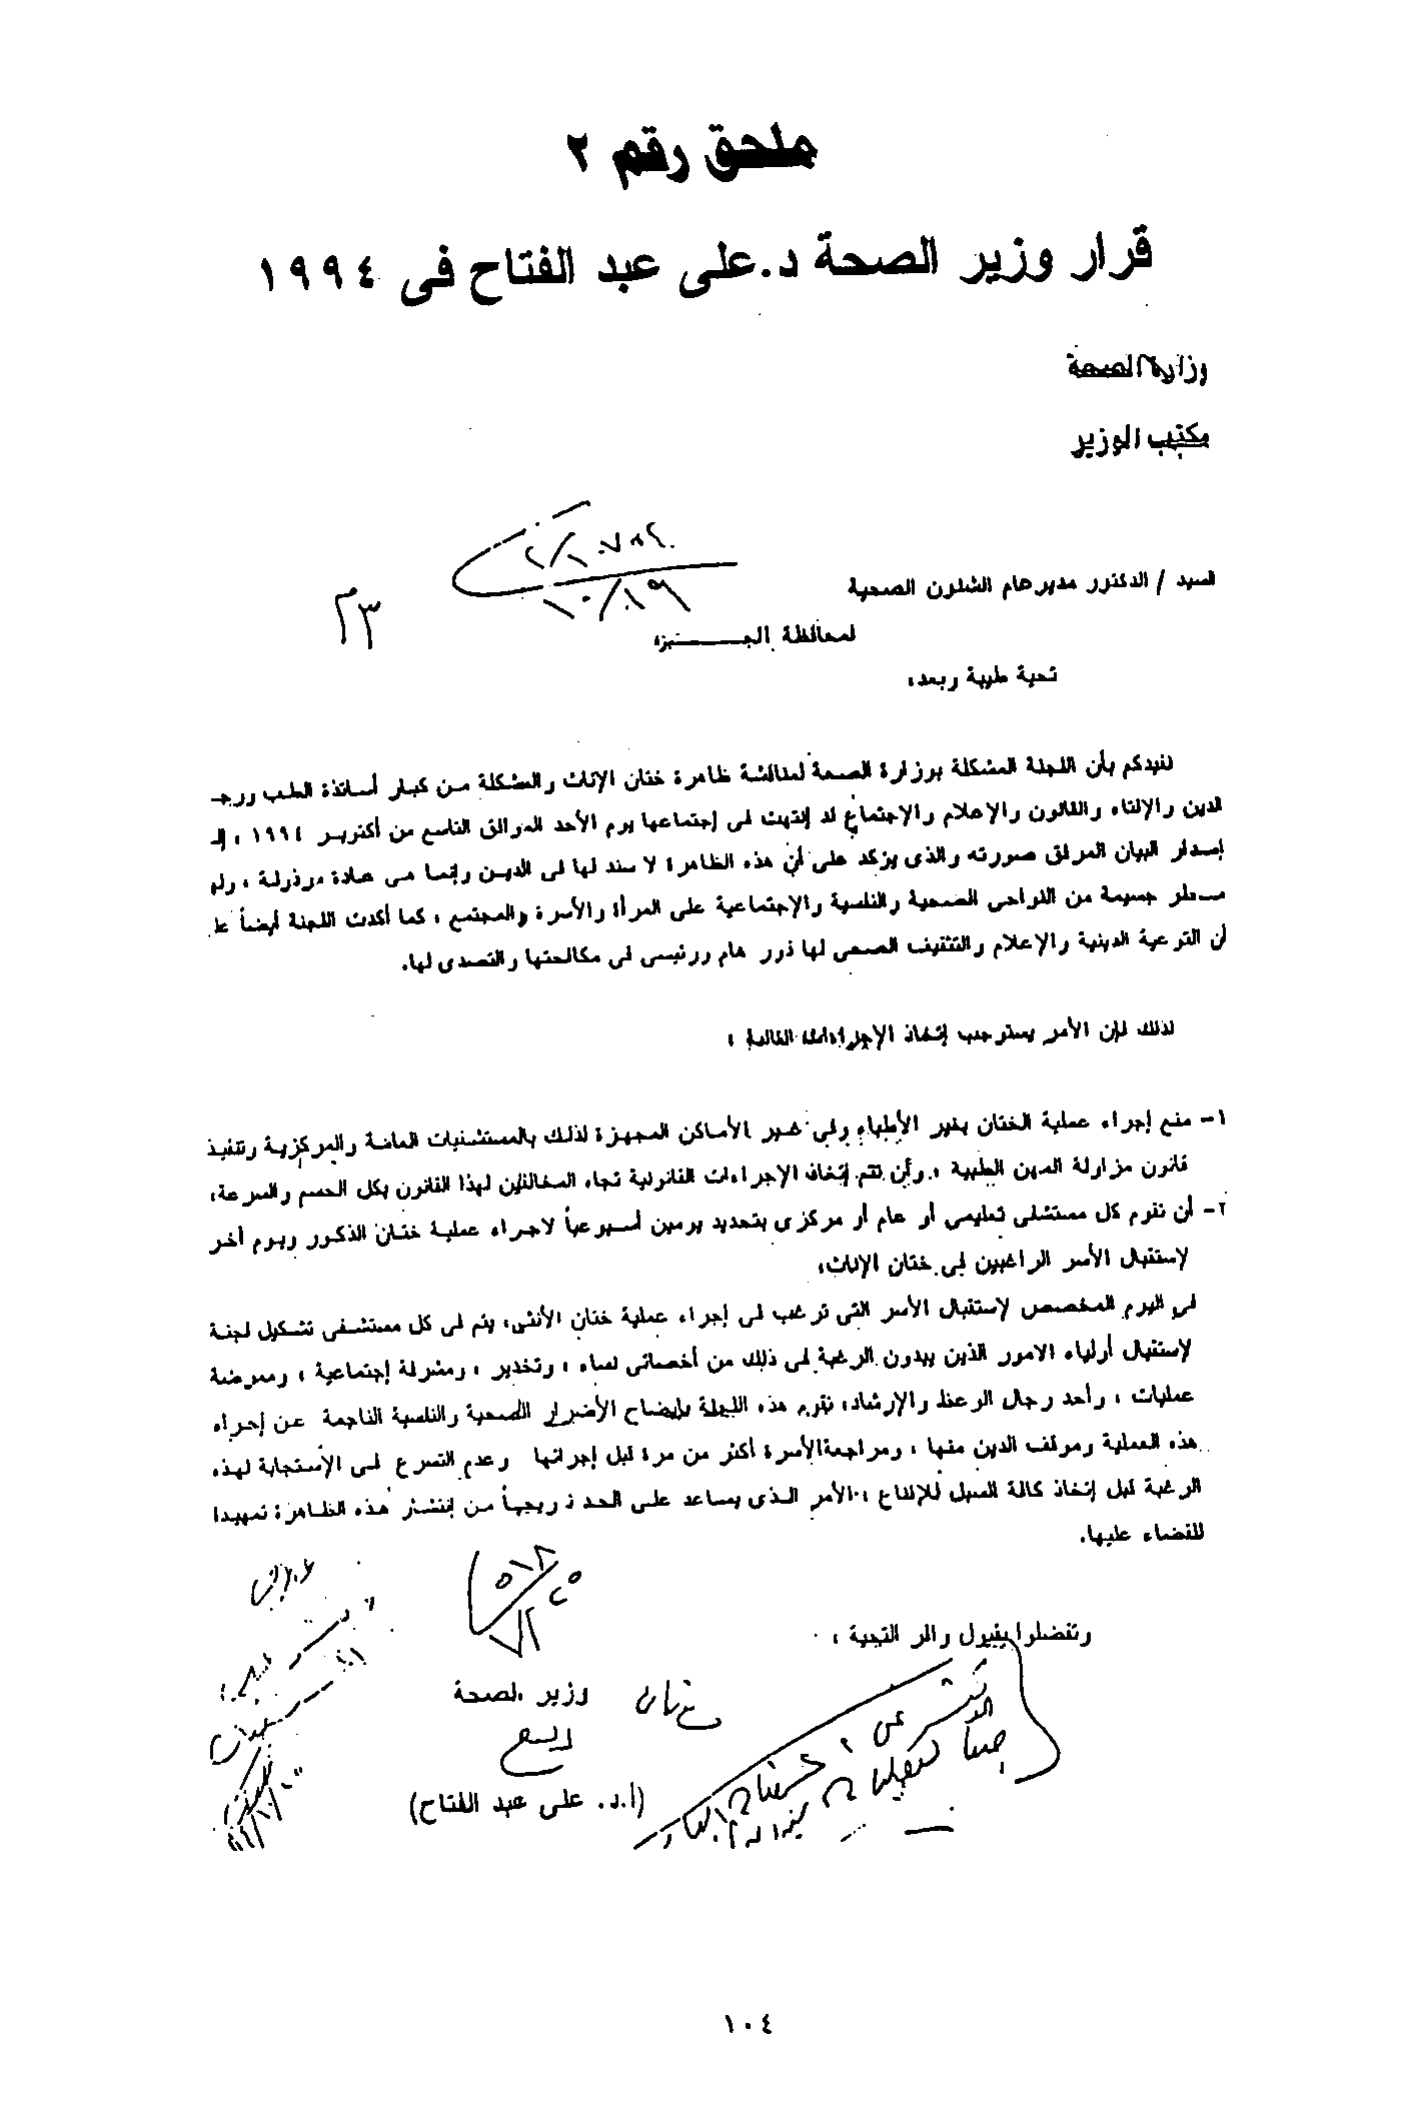 ملحق رقم ٢
قرار وزير الصحة د.على عبد الفتاح فى ١٩٩٤
وزارة الصحة
مكتب الوزير
السيد / الدكتور مدير عام الشئون الصحية
لمحافظة الجـــــيزة
تحية طيبة وبعد،
نفيدكم بأن اللجنة المشكلة بوزارة الصحة لمناقشة ظاهرة ختان الإناث والمشكلة من كبار أساتذة الطب ورجـ
الدين والإفتاء والقانون والإعلام والإجتماع قد إنتهت فى إجتماعها يوم الأحد الموافق التاسع من أكتوبر ١٩٩٤ ، إلـ
إصدار البيان المرفق صورته والذى يؤكد على أن هذه الظاهرة لا سند لها فى الدين وإنما هى عادة مرذولة ، ولها
جسيمة من النواحى الصحية والنفسية والإجتماعية على المرأة والأسرة والمجتمع ، كما أكدت اللجنة أيضاً علـ
أن التوعية الدينية والإعلام والتثقيف الصحى لها دور هام ورئيسى فى مكافحتها والتصدى لها.
لذلك فإن الأمر يستوجب إتخاذ الإجراءات التالية :
١- منع إجراء عملية الختان بغير الأطباء وفى غير الأماكن المجهزة لذلك بالمستشفيات العامة والمركزية وتنفيذ
قانون مزاولة المهن الطبية ، وأن تتم إتخاذ الإجراءات القانونية تجاه المخالفين لهذا القانون بكل الحسم والسرعة،
٢- أن تقوم كل مستشفى تعليمى أو عام أو مركزى بتحديد يومين أسبوعياً لاجراء عملية ختان الذكور ويوم آخر
لإستقبال الأسر الراغبين فى ختان الإناث،
فى اليوم المخصص لإستقبال الأسر التى ترغب فى إجراء عملية ختان الأنثى، يتم فى كل مستشفى تشكيل لجنة
لإستقبال أولياء الامور الذين يبدون الرغبة فى ذلك من أخصائى نساء ، وتخدير ، ومشرفة إجتماعية ، وممرضة
عمليات ، وأحد رجال الوعظ والإرشاد، تقوم هذه اللجنة بإيضاح الأضرار الصحية والنفسية الناجمة عن إجراء
هذه العملية وموقف الدين منها ، ومراجعة الأسرة أكثر من مرة قبل إجرائها وعدم التسرع فى الإستجابة لهذه
الرغبة قبل إتخاذ كافة السبل للإقناع ، الأمر الذى يساعد على الحد تدريجياً من إنتشار هذه الظاهرة تمهيدا
للقضاء عليها.
وتفضلوا بقبول وافر التحية ،
وزير الصحة
(أ.د. على عبد الفتاح)
١٠٤